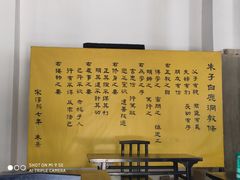 朱子白鹿洞教條
父子有親 君臣有義
夫婦有別 長幼有序
朋友有信
右五教之目
博學之 審問之 慎思之
明辨之 篤行之
右為學之序
言忠信 行篤敬
懲忿窒慾 遷善改過
右修身之要
正其誼不謀其利
明其道不計其功
右處事之要
己所不欲 勿施於人
行有不得 反求諸己
右接物之要
宋淳熙七年 朱熹
SHOT ON MI 9 SE
AI TRIPLE CAMERA